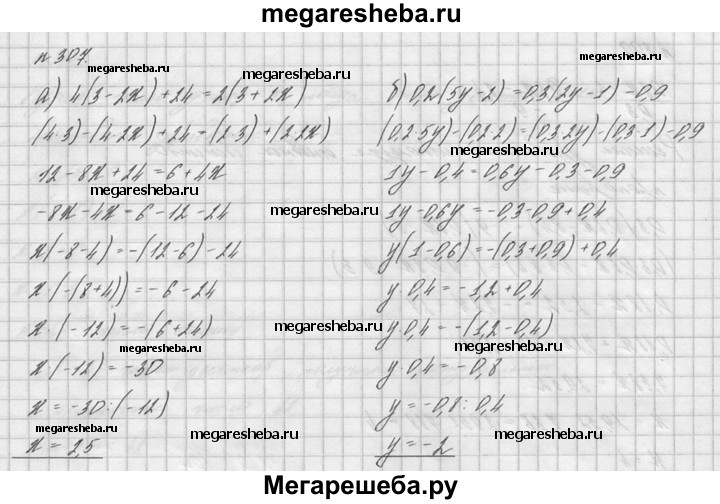 megaresheba.ru
n 307.
а) 4(3-2x)+24=2(3+2x)
(4·3)-(4·2x)+24=(2·3)+(2·2x)
12-8x+24=6+4x
-8x-4x=6-12-24
x(-8-4)=-(12-6)-24
x(-(8+4))=-6-24
x·(-12)=-(6+24)
x(-12)=-30
x=-30:(-12)
x=2,5
б) 0,2(5y-2)=0,3(2y-1)-0,9
(0,2·5y)-(0,2·2)=(0,3·2y)-(0,3·1)-0,9
1y-0,4=0,6y-0,3-0,9
1y-0,6y=-0,3-0,9+0,4
y(1-0,6)=-(0,3+0,9)+0,4
y·0,4=-1,2+0,4
y·0,4=-(1,2-0,4)
y·0,4=-0,8
y=-0,8:0,4
y=-2
megaresheba.ru
megaresheba.ru
megaresheba.ru
megaresheba.ru
megaresheba.ru
megaresheba.ru
megaresheba.ru
megaresheba.ru
megaresheba.ru
megaresheba.ru
megaresheba.ru
megaresheba.ru
megaresheba.ru
Мегарешеба.ру